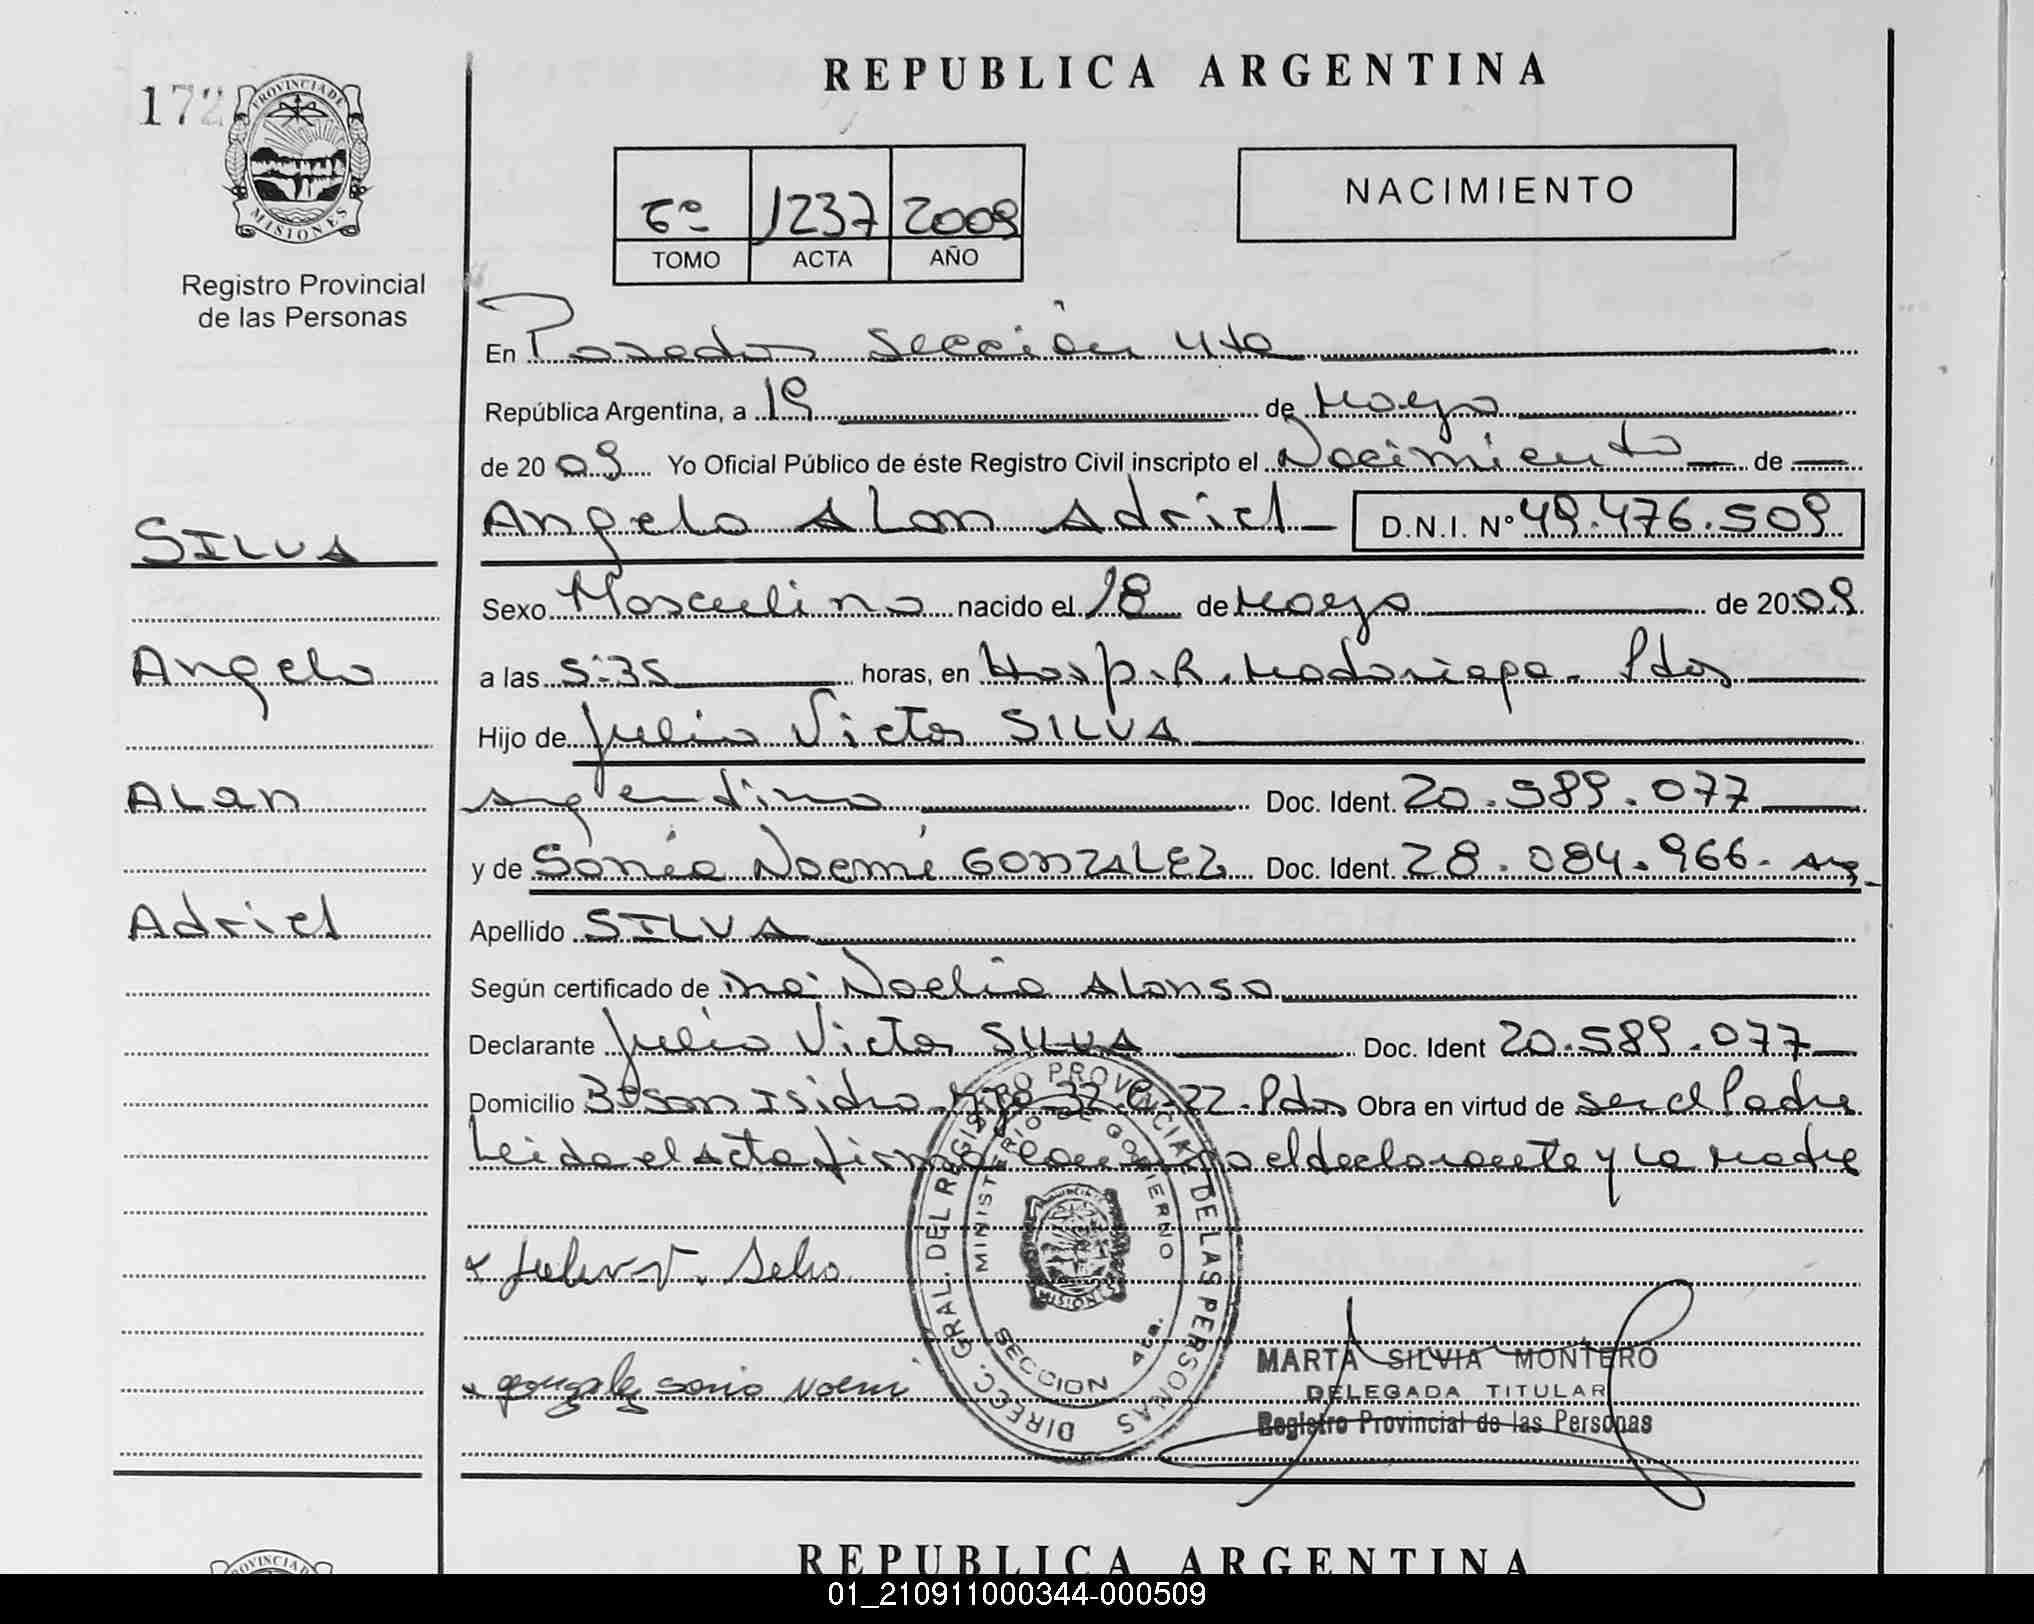 REPUBLICA ARGENTINA
172
PROVINCIA DE
MISIONES
Registro Provincial
de las Personas
6º 1237 2009
TOMO ACTA AÑO
NACIMIENTO
En Posadas Sección 4ta
República Argentina, a 19 de Mayo
de 2009 Yo Oficial Público de éste Registro Civil inscripto el Nacimiento de
SILVA
Angelo Alan Adriel D.N.I. Nº 49.476.509
Sexo Masculino nacido el 18 de Mayo de 2009
Angelo
a las 5:35 horas, en Hosp. R. Madariaga - Pdas
Hijo de Julio Victor SILVA
Alan
argentino Doc. Ident. 20.589.077
y de Sonia Noemi GONZALEZ Doc. Ident. 28.084.966. Arg.
Adriel
Apellido SILVA
Según certificado de Dra Noelia Alonso
Declarante Julio Victor SILVA Doc. Ident 20.589.077
Domicilio Bº San Isidro 32 C-22-Pdas Obra en virtud de ser el Padre
Leida el Acta firma el declarante y la madre
DIRECC. GRAL. DEL REGISTRO PROVINCIAL DE LAS PERSONAS
MINISTERIO DE GOBIERNO
MISIONES
SECCION 4ta.
x Julio V. Silva
x gonzalez sonia Noemi
MARTA SILVIA MONTERO
DELEGADA TITULAR
Registro Provincial de las Personas
PROVINCIA
REPUBLICA ARGENTINA
01_210911000344-000509